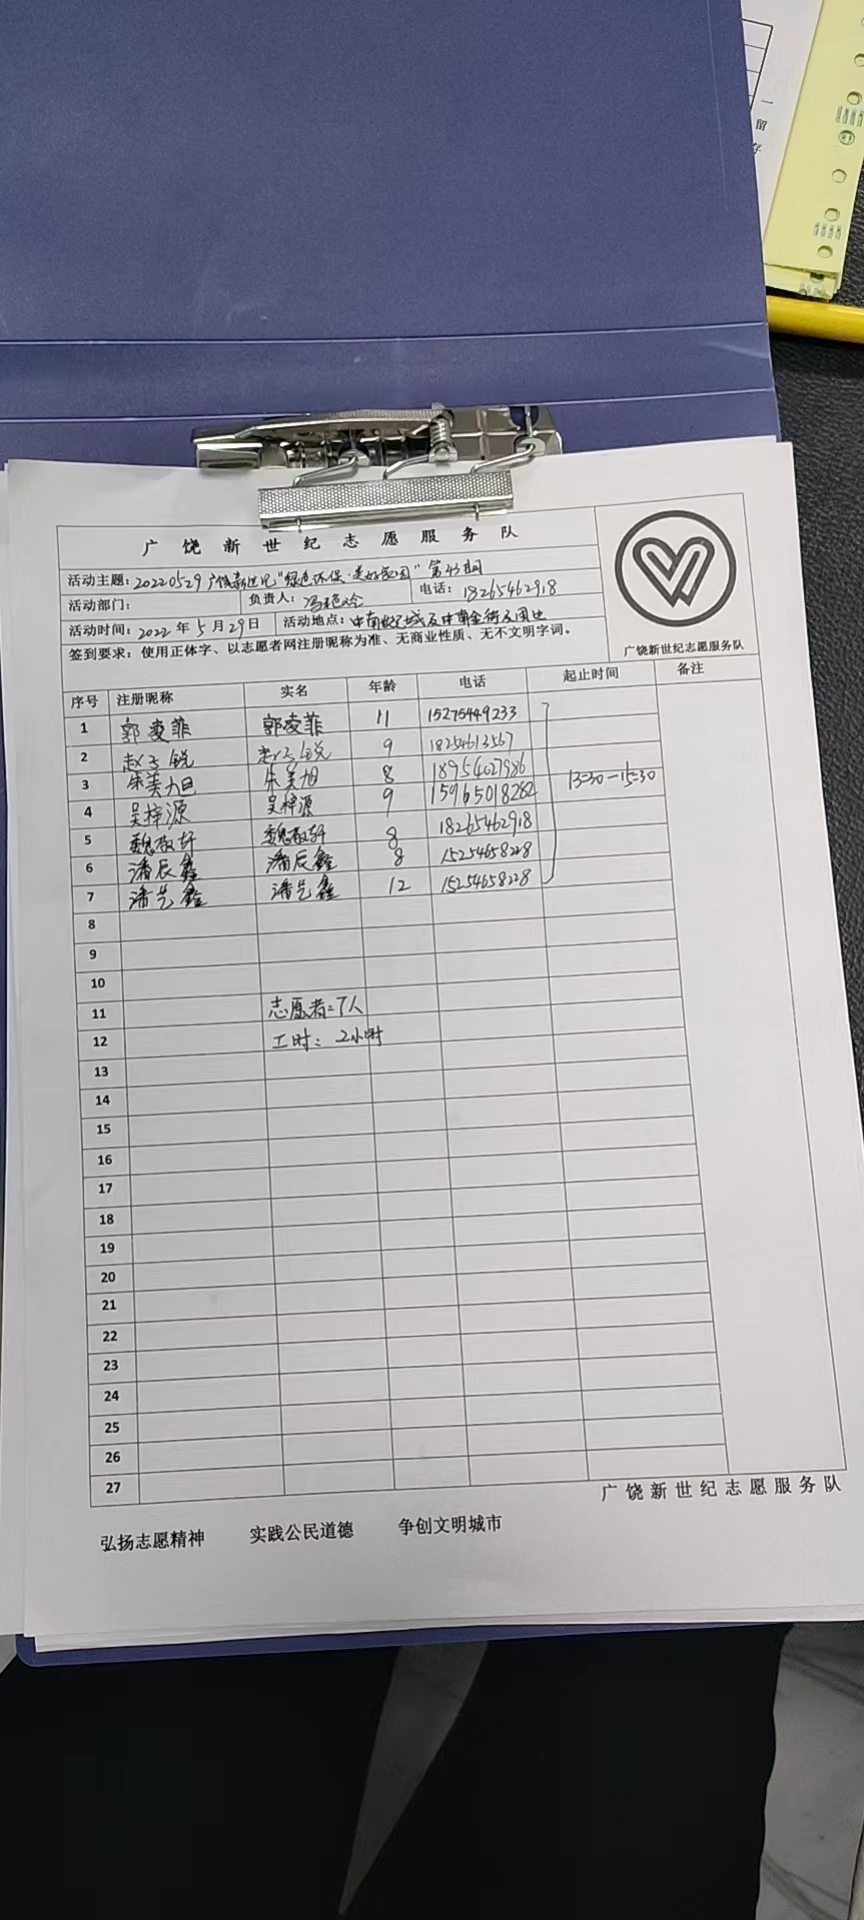 一
留
存
广饶新世纪志愿服务队
活动主题：20220529广饶新世纪"绿色环保·美好家园"第43期
活动部门： 负责人：冯 电话：18265462918
活动时间：2022年5月29日 活动地点：中南世纪城及中南金街及周边
签到要求：使用正体字、以志愿者网注册昵称为准、无商业性质、无不文明字词。
广饶新世纪志愿服务队
序号 注册昵称 实名 年龄 电话 起止时间 备注
1 郭凌菲 郭凌菲 11 15275449233
2 赵子锐 赵子锐 9 18254613567
3 朱美旭 朱美旭 8 18954627986 13:30—15:30
4 吴梓源 吴梓源 9 15965018282
5 魏敬轩 魏敬轩 8 18265462918
6 潘辰鑫 潘辰鑫 8 15254658228
7 潘艺鑫 潘艺鑫 12 15254658228
8
9
10
11 志愿者：7人
12 工时：2小时
13
14
15
16
17
18
19
20
21
22
23
24
25
26
27
广饶新世纪志愿服务队
弘扬志愿精神 实践公民道德 争创文明城市